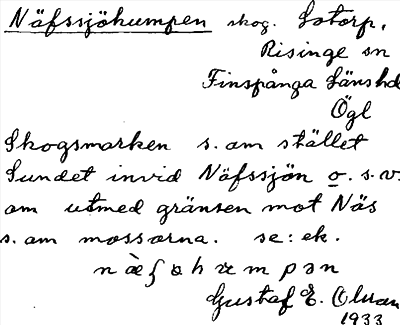 Näfssjökumpen skog. Lotorp,
Risinge sn
Finspånga Länshd
Ögl
Skogsmarken s. om stället
Sundet invid Näfssjön o. s.v.
om utmed gränsen mot Näs
s. om mossarna. se: ek.
Gustaf E. Olsson
1933